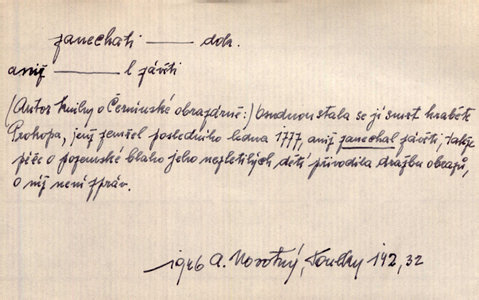 zanechati —— dok.
aniž —— l závěti
(Autor knihy o Černínské obrazárně:) Osudnou stala se jí smrt hraběte
Prokopa, jenž zemřel posledního ledna 1777, aniž zanechal závěti, takže
péče o pozemské blaho jeho nezletilých dětí přivodila dražbu obrazů,
o níž není zpráv.
1946 A. Novotný, Toulky 142, 32